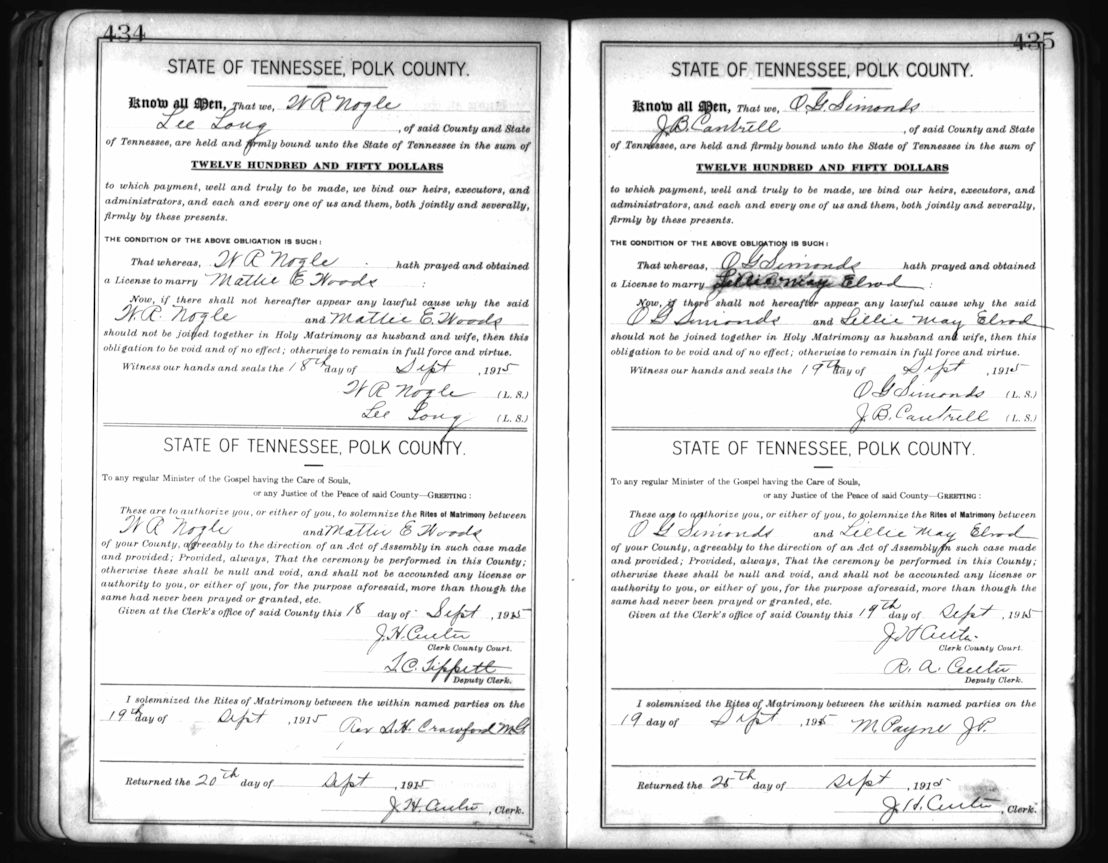 434
STATE OF TENNESSEE, POLK COUNTY.
Know all Men, That we, W R Nogle
Lee Long , of said County and State
of Tennessee, are held and firmly bound unto the State of Tennessee in the sum of
TWELVE HUNDRED AND FIFTY DOLLARS
to which payment, well and truly to be made, we bind our heirs, executors, and
administrators, and each and every one of us and them, both jointly and severally,
firmly by these presents.
THE CONDITION OF THE ABOVE OBLIGATION IS SUCH:
That whereas, W R Nogle hath prayed and obtained
a License to marry Mattie E Woods :
Now, if there shall not hereafter appear any lawful cause why the said
W R. Nogle and Mattie E. Woods
should not be joined together in Holy Matrimony as husband and wife, then this
obligation to be void and of no effect; otherwise to remain in full force and virtue.
Witness our hands and seals the 18th day of Sept , 1915
W R Nogle (L. S.)
Lee Long (L. S.)
STATE OF TENNESSEE, POLK COUNTY.
To any regular Minister of the Gospel having the Care of Souls,
or any Justice of the Peace of said County—GREETING:
These are to authorize you, or either of you, to solemnize the Rites of Matrimony between
W R Nogle and Mattie E Woods
of your County, agreeably to the direction of an Act of Assembly in such case made
and provided; Provided, always, That the ceremony be performed in this County;
otherwise these shall be null and void, and shall not be accounted any license or
authority to you, or either of you, for the purpose aforesaid, more than though the
same had never been prayed or granted, etc.
Given at the Clerk's office of said County this 18 day of Sept , 1915
J. H. Center
Clerk County Court.
T. C. Tippett
Deputy Clerk.
I solemnized the Rites of Matrimony between the within named parties on the
19th day of Sept , 1915
Rev S. H. Crawford M.G.
Returned the 20th day of Sept , 1915
J. H. Center , Clerk.
435
STATE OF TENNESSEE, POLK COUNTY.
Know all Men, That we, O. G. Simonds
J. B. Cantrell , of said County and State
of Tennessee, are held and firmly bound unto the State of Tennessee in the sum of
TWELVE HUNDRED AND FIFTY DOLLARS
to which payment, well and truly to be made, we bind our heirs, executors, and
administrators, and each and every one of us and them, both jointly and severally,
firmly by these presents.
THE CONDITION OF THE ABOVE OBLIGATION IS SUCH:
That whereas, O G Simonds hath prayed and obtained
a License to marry Lillie May Elrod :
Now, if there shall not hereafter appear any lawful cause why the said
O G Simonds and Lillie May Elrod
should not be joined together in Holy Matrimony as husband and wife, then this
obligation to be void and of no effect; otherwise to remain in full force and virtue.
Witness our hands and seals the 19th day of Sept , 1915
O G Simonds (L. S.)
J. B. Cantrell (L. S.)
STATE OF TENNESSEE, POLK COUNTY.
To any regular Minister of the Gospel having the Care of Souls,
or any Justice of the Peace of said County—GREETING:
These are to authorize you, or either of you, to solemnize the Rites of Matrimony between
O G Simonds and Lillie May Elrod
of your County, agreeably to the direction of an Act of Assembly in such case made
and provided; Provided, always, That the ceremony be performed in this County;
otherwise these shall be null and void, and shall not be accounted any license or
authority to you, or either of you, for the purpose aforesaid, more than though the
same had never been prayed or granted, etc.
Given at the Clerk's office of said County this 19th day of Sept , 1915
J H Center
Clerk County Court.
R. A. Center
Deputy Clerk.
I solemnized the Rites of Matrimony between the within named parties on the
19 day of Sept , 1915
M. Payne J.P.
Returned the 25th day of Sept , 1915
J. H. Center , Clerk.